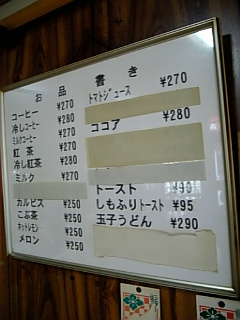 お品書き
コーヒー ¥270
冷しコーヒー ¥280
ミルクコーヒー ¥270
紅茶 ¥270
冷し紅茶 ¥280
ミルク ¥270
カルピス ¥250
こぶ茶 ¥250
ホットレモン ¥250
メロン ¥250
トマトジュース ¥270
ココア ¥280
トースト ¥90
しもふりトースト ¥95
玉子うどん ¥290